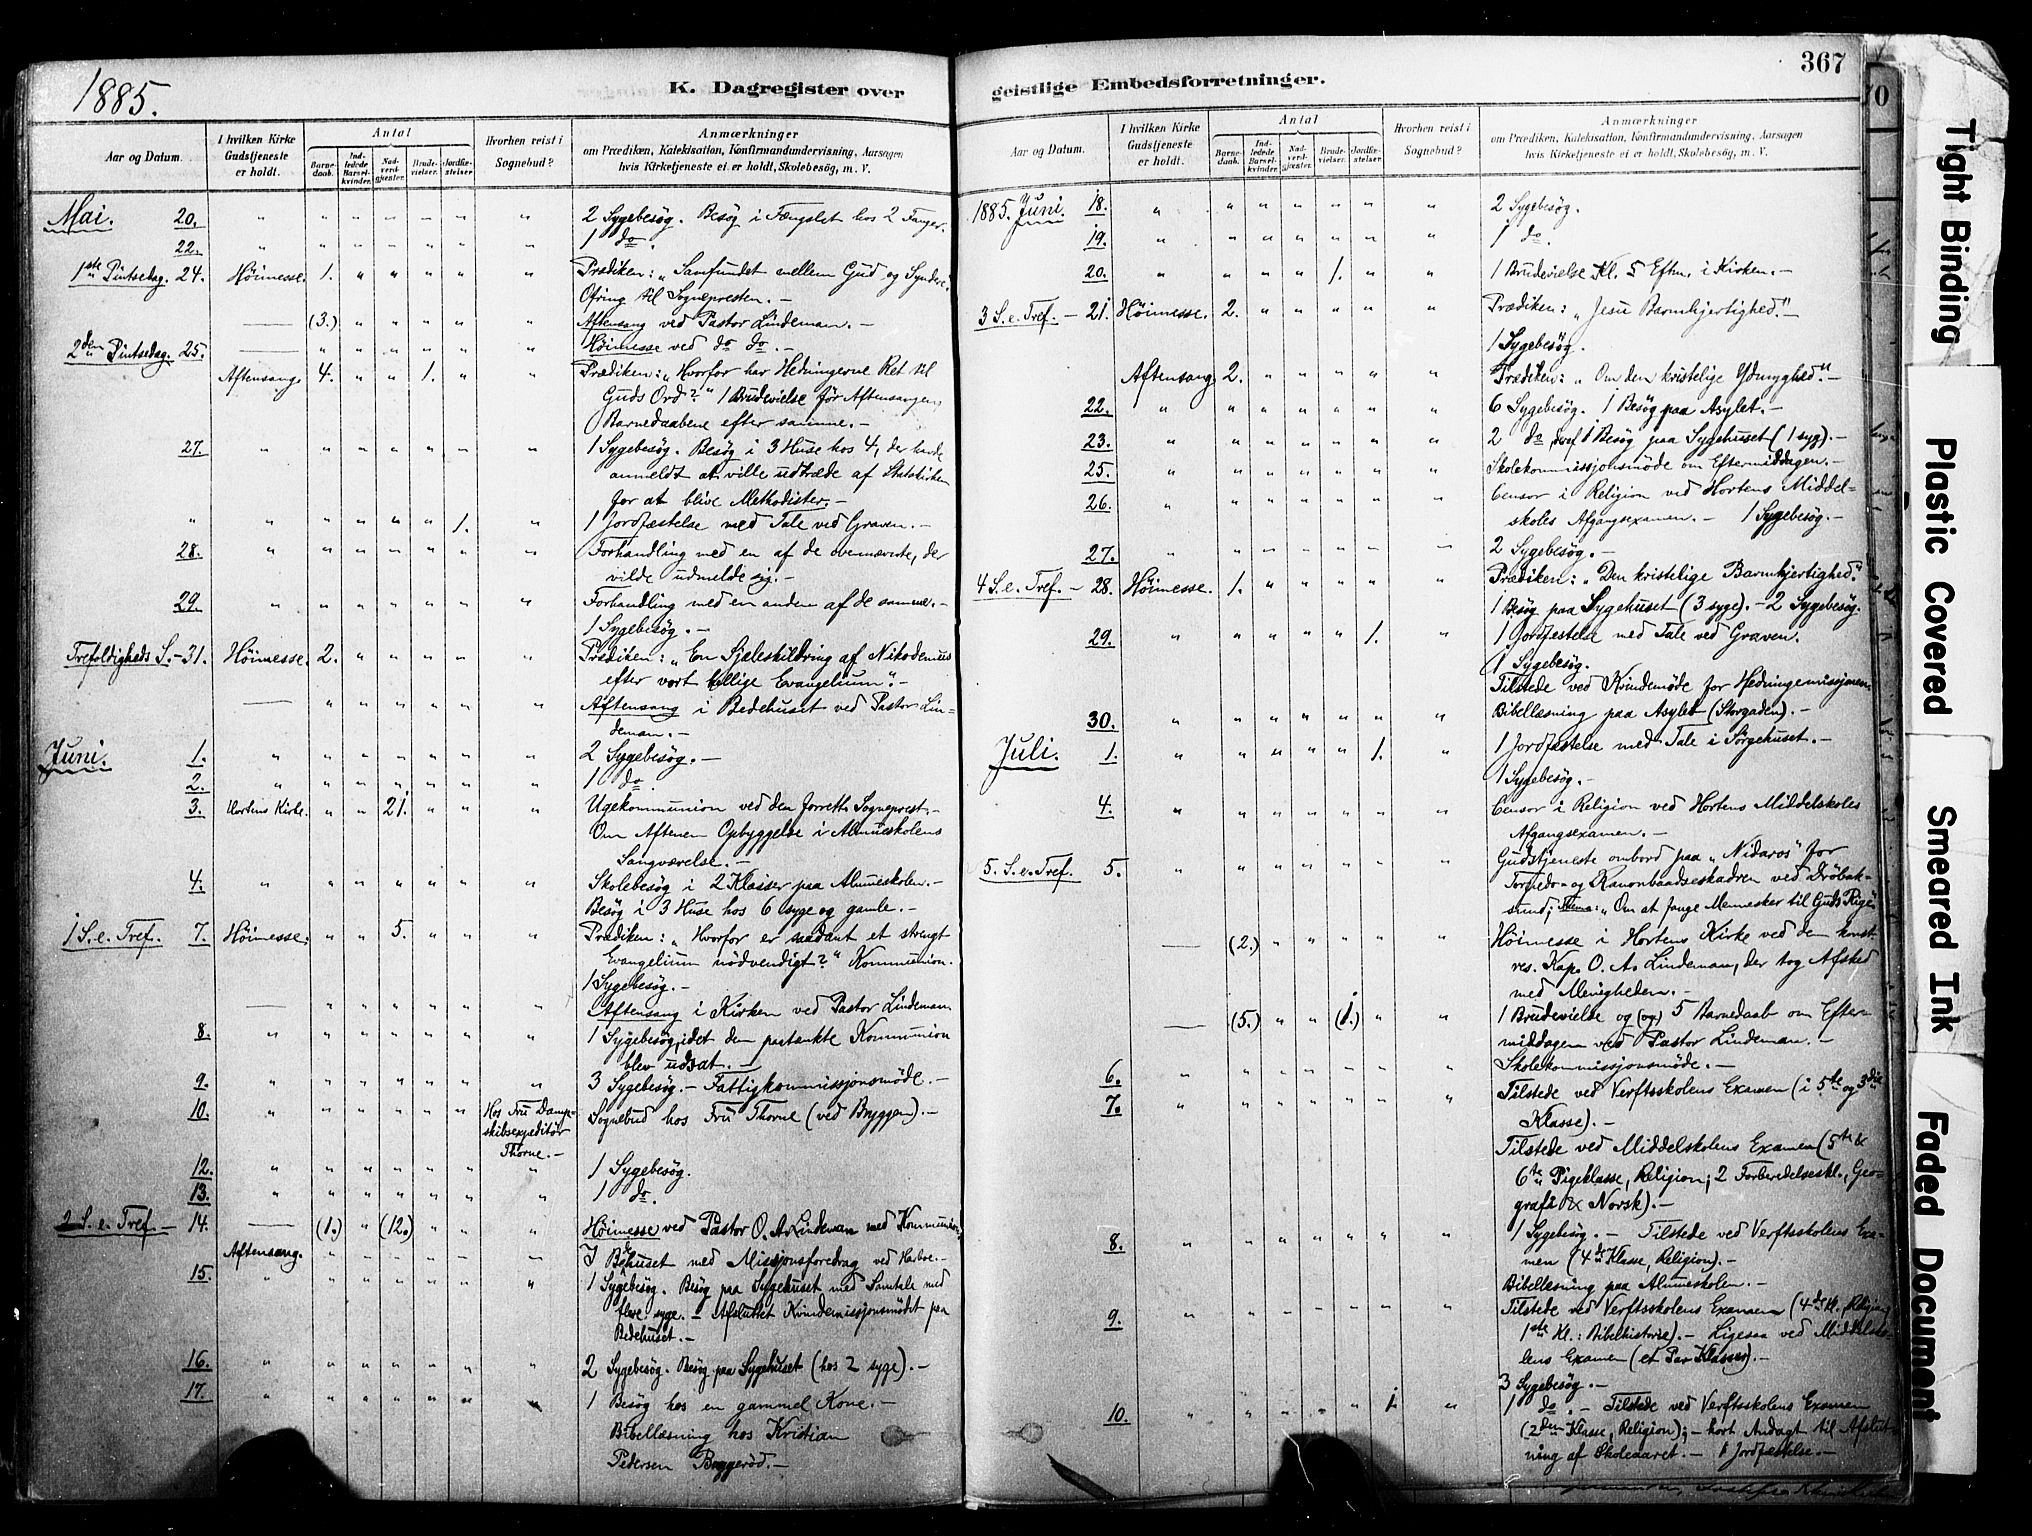 1885.
K. Dagregister over
Aar og Datum.
I hvilken Kirke Gudstjeneste er holdt.
Antal
Barne-daab.
Ind-ledede Barsel-kvinder.
Nad-verd-gjester.
Brude-vielser.
Jordfæ-stelser
Hvorhen reist i Sognebud?
Anmærkninger
om Prædiken, Katekisation, Konfirmandundervisning, Aarsagen
hvis Kirketjeneste ei er holdt, Skolebesøg, m. V.
Mai. 20. " " " " " " " 2 Sygebesøg. Besøg i Fængslet hos 2 Fanger.
22. " " " " " " " 1 do.
1ste Pintsedag. 24. Höimesse. 1. " " " " " Prædiken: "Samfundet mellem Gud og Syndere."
Ofring til Sognepresten. –
— (3.) " " " " " Aftensang ved Pastor Lindeman. –
2den Pintsedag. 25. — " " " " " " Höimesse ved do do. –
Aftensang 4. " " 1. " " Prædiken: "Hvorfor har Hedningerne Ret til
Guds Ord?" 1 Brudevielse før Aftensangen,
Barnedaabene efter samme. –
27. " " " " " " " 1 Sygebesøg. Besøg i 3 Huse hos 4, der havde
anmeldt at ville udtræde af Statskirken
for at blive Methodister. –
" " " " " " 1. " 1 Jordfæstelse med Tale ved Graven. –
28. " " " " " " " Forhandling med en af de ovennævnte, der
vilde udmelde sig. –
29. " " " " " " " Forhandling med en anden af de samme. –
1 Sygebesøg. –
Trefoldigheds S. – 31. Höimesse. 2. " " " " " Prædiken: "En Sjæleskildring af Nikodemus
efter vort hellige Evangelium". –
— " " " " " " Aftensang i Bedehuset ved Pastor Lin-
deman. –
Juni. 1. " " " " " " " 2 Sygebesøg. –
2. " " " " " " " 1 do.
3. Hortens Kirke. " " 21. " " " Ugekommunion ved den forrett. Sogneprest. –
Om Aftenen Opbyggelse i Almueskolens
Sangværelse. –
4. " " " " " " " Skolebesøg i 2 Klasser paa Almueskolen. –
Besøg i 3 Huse hos 6 syge og gamle. –
1 S. e. Tref. 7. Höimesse. " " 5. " " " Prædiken: "Hvorfor er saadant et strengt
Evangelium nödvendigt?" Kommunion.
1 Sygebesøg. –
— " " " " " " Aftensang i Kirken ved Pastor Lindeman
8. " " " " " " " 1 Sygebesøg, idet den paatænkte Kommunion
blev udsat. –
9. " " " " " " " 3 Sygebesøg. – Fattigkommissjonsmöde. –
10. " " " " " " Hos Fru Damp-
skibsexpeditör
Thorne. – Sognebud hos Fru Thorne (ved Bryggen). –
12. " " " " " " " 1 Sygebesøg.
13. " " " " " " " 1 do.
2 S. e. Tref. – 14. — (1.) " (12.) " " " Höimesse ved Pastor O. A. Lindeman med Kommunion.
Aftensang. " " " " " " I Bedehuset med Missjonsforedrag ved Harboe. –
15. " " " " " " " 1 Sygebesøg. Besøg paa Sygehuset med Samtale med
flere syge. – Afsluttet Kvindemissjonsmödet paa
Bedehuset. –
16. " " " " " " " 2 Sygebesøg. Besøg paa Sygehuset (hos 2 syge). –
17. " " " " " " " 1 Besøg hos en gammel Kone. –
Bibellæsning hos Kristian
Pedersen Bryggeröd. –
367
geistlige Embedsforretninger.
Aar og Datum.
I hvilken Kirke Gudstjeneste er holdt.
Antal
Barne-daab.
Ind-ledede Barsel-kvinder.
Nad-verd-gjester.
Brude-vielser.
Jordfæ-stelser.
Hvorhen reist i Sognebud?
Anmærkninger
om Prædiken, Katekisation, Konfirmandundervisning, Aarsagen
hvis Kirketjeneste ei er holdt, Skolebesøg, m. V.
1885. Juni. 18. " " " " " " " 2 Sygebesøg.
19. " " " " " " " 1 do.
20. " " " " 1. " " 1 Brudevielse Kl. 5 Eftm. i Kirken. –
3 S. e. Tref. – 21. Höimesse. 2. " " " " " Prædiken: "Jesu Barmhjertighed." –
1 Sygebesøg.
Aftensang. 2. " " " " " Prædiken: "Om den kristelige Ydmyghed." –
22. " " " " " " " 6 Sygebesøg. 1 Besøg paa Asylet. –
23. " " " " " " " 2 do, deraf 1 Besøg paa Sygehuset (1 syg). –
25. " " " " " " " Skolekommissjonsmöde om Eftermiddagen. –
26. " " " " " " " Censor i Religion ved Hortens Middel-
skoles Afgangsexamen. – 1 Sygebesøg. –
27. " " " " " " " 2 Sygebesøg. –
4 S. e. Tref. – 28. Höimesse. 1. " " " " " Prædiken: "Den kristelige Barmhjertighed."
1 Besøg paa Sygehuset (3 syge). – 2 Sygebesøg.
29. " " " " " 1. " 1 Jordfæstelse med Tale ved Graven.
1 Sygebesøg.
Tilstede ved Kvindemöde for Hedningemissjonen
30. " " " " " " " Bibellæsning paa Asylet (Storgaden). –
Juli. 1. " " " " " 1. " 1 Jordfæstelse med Tale i Sörgehuset. –
1 Sygebesøg. –
4. " " " " " " " Censor i Religion ved Hortens Middelskoles
Afgangsexamen. –
5. S. e. Tref. 5. " " " " " " " Gudstjeneste ombord paa "Nidaros" for
Torpedo- og Kanonbaadseskadren ved Dröbak-
sund; Thema: "Om at fange Mennesker til Guds Rige."
— (2.) " " " " " Höimesse i Hortens Kirke ved den konst.
res. Kap. O. A. Lindeman, der tog Afsked
med Menigheden. –
— (5.) " " (1.) " " 1 Brudevielse og (og) 5 Barnedaab om Efter-
middagen ved Pastor Lindeman. –
6. " " " " " " " Skolekommissjonsmöde. –
7. " " " " " " " Tilstede ved Verftsskolens Examen (i 5te og 3die
Klasse). –
Tilstede ved Middelskolens Examen (5te &
6te Pigeklasse, Religion; 2 Forberedelseskl., Geo-
grafi & Norsk). –
8. " " " " " " " 1 Sygebesøg. – Tilstede ved Verftsskolens Exa-
men (4de Klasse, Religion). –
Bibellæsning paa Almueskolen. –
9. " " " " " " " Tilstede ved Verftsskolens Examen (4de Kl. Religion,
1ste Kl.: Bibelhistorie). – Ligesaa ved Middelsko-
lens Examen (et Par Klasser). –
3 Sygebesøg. –
10. " " " " " 1 " 1 do. – Tilstede ved Verftsskolens Examen
(2den Klasse, Religion); – kort Andagt til Afslut-
ning af Skoleaaret. – 1 Jordfæstelse. –
70
Tight Binding
Plastic Covered
Smeared Ink
Faded Document